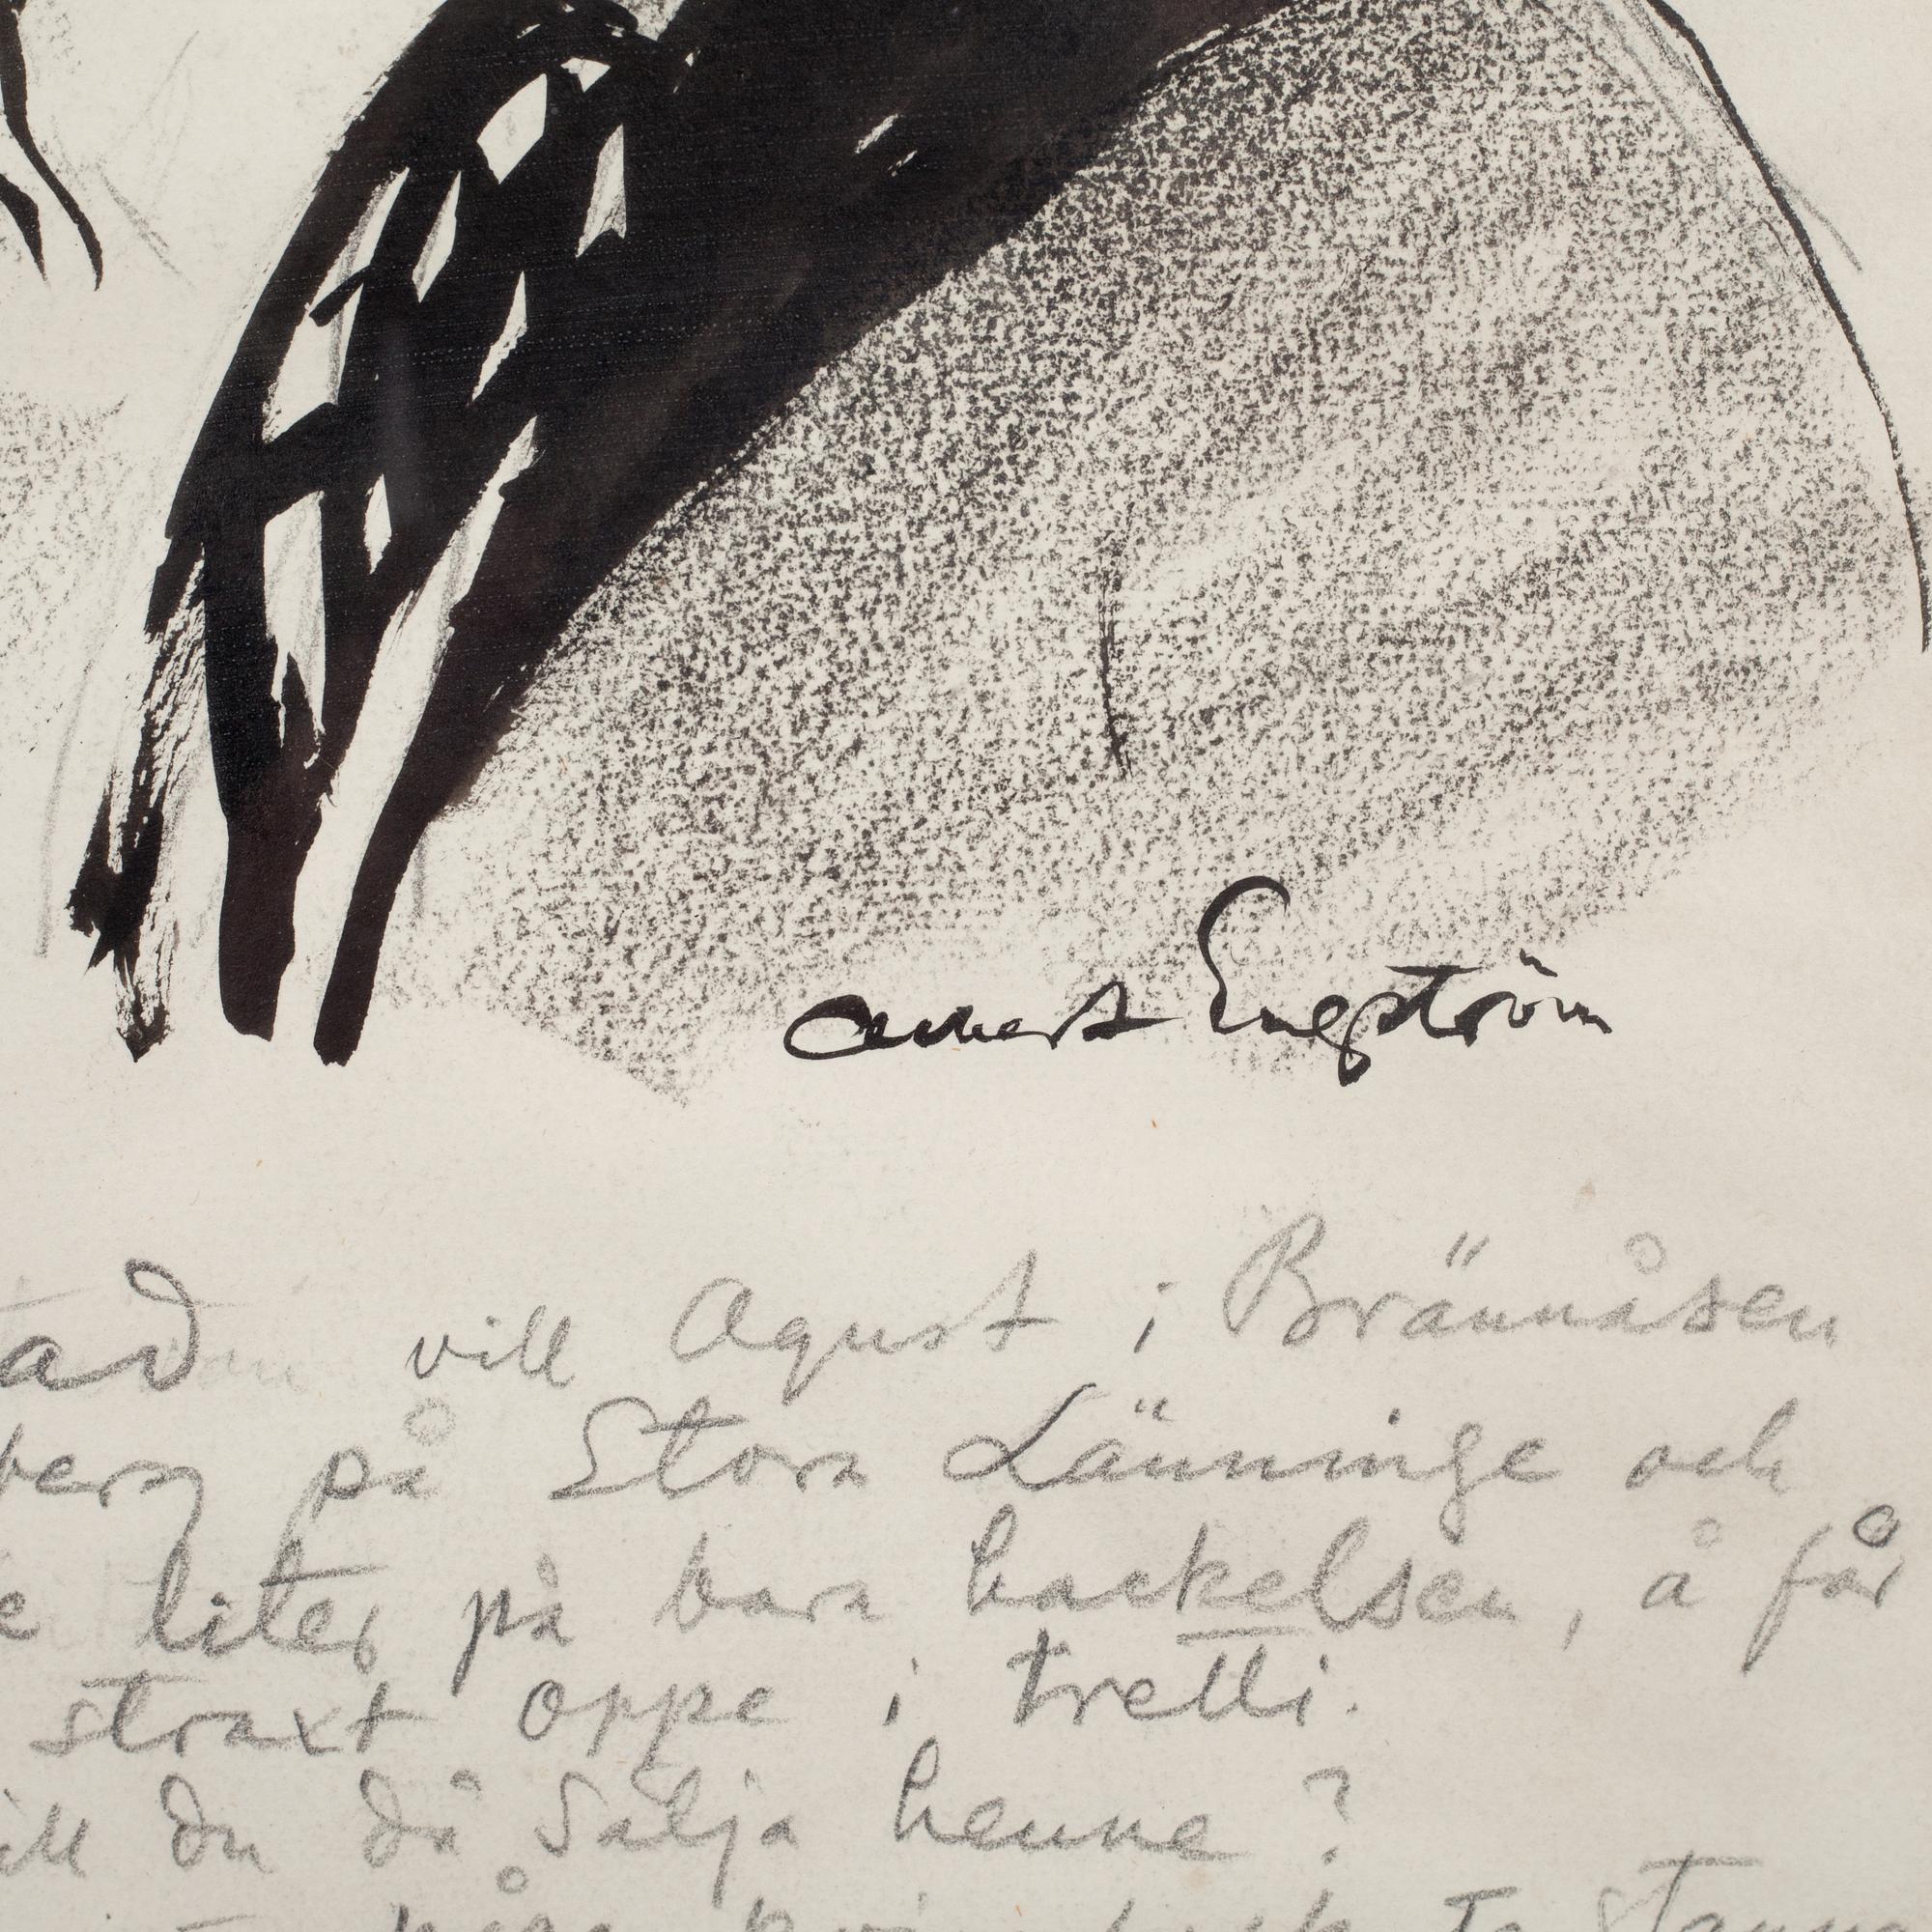 Albert Engström
vill Agust i Brännåsen
berg på Stora Länninge och
liter på bara hackelsen, å får
straxt oppe i tretti.
ill du då sälja henne?